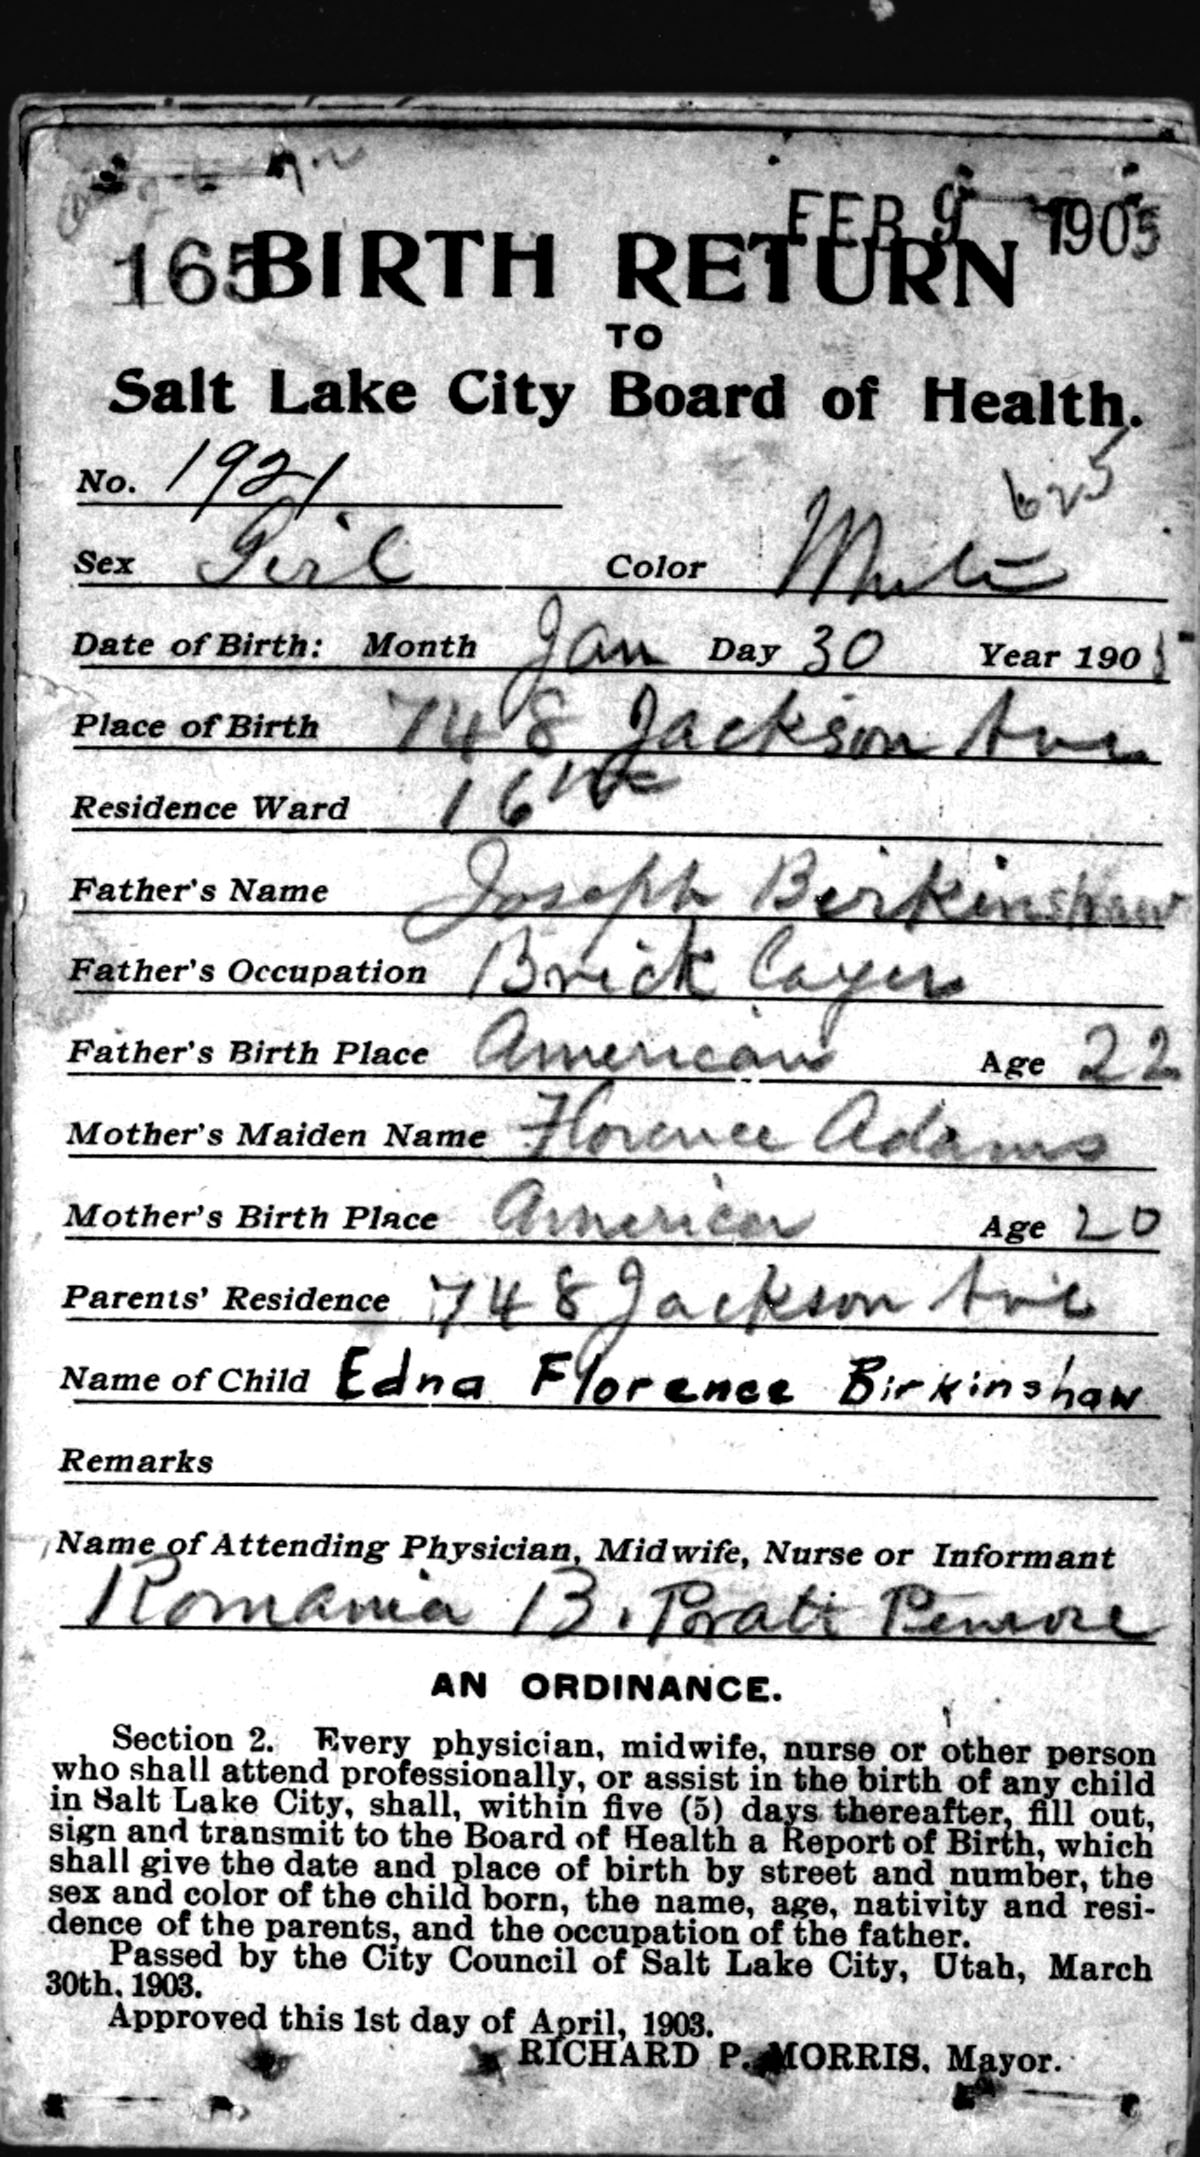 FEB 9 1905
165 BIRTH RETURN
TO
Salt Lake City Board of Health.
625
No. 1921
Sex Girl Color White
Date of Birth: Month Jan Day 30 Year 1905
Place of Birth 748 Jackson Ave
Residence Ward 16th
Father's Name Joseph Birkinshaw
Father's Occupation Brick layer
Father's Birth Place American Age 22
Mother's Maiden Name Florence Adams
Mother's Birth Place American Age 20
Parents' Residence 748 Jackson Ave
Name of Child Edna Florence Birkinshaw
Remarks
Name of Attending Physician, Midwife, Nurse or Informant
Romania B. Pratt Penrose
AN ORDINANCE.
Section 2. Every physician, midwife, nurse or other person
who shall attend professionally, or assist in the birth of any child
in Salt Lake City, shall, within five (5) days thereafter, fill out,
sign and transmit to the Board of Health a Report of Birth, which
shall give the date and place of birth by street and number, the
sex and color of the child born, the name, age, nativity and resi-
dence of the parents, and the occupation of the father.
Passed by the City Council of Salt Lake City, Utah, March
30th, 1903.
Approved this 1st day of April, 1903.
RICHARD P. MORRIS, Mayor.